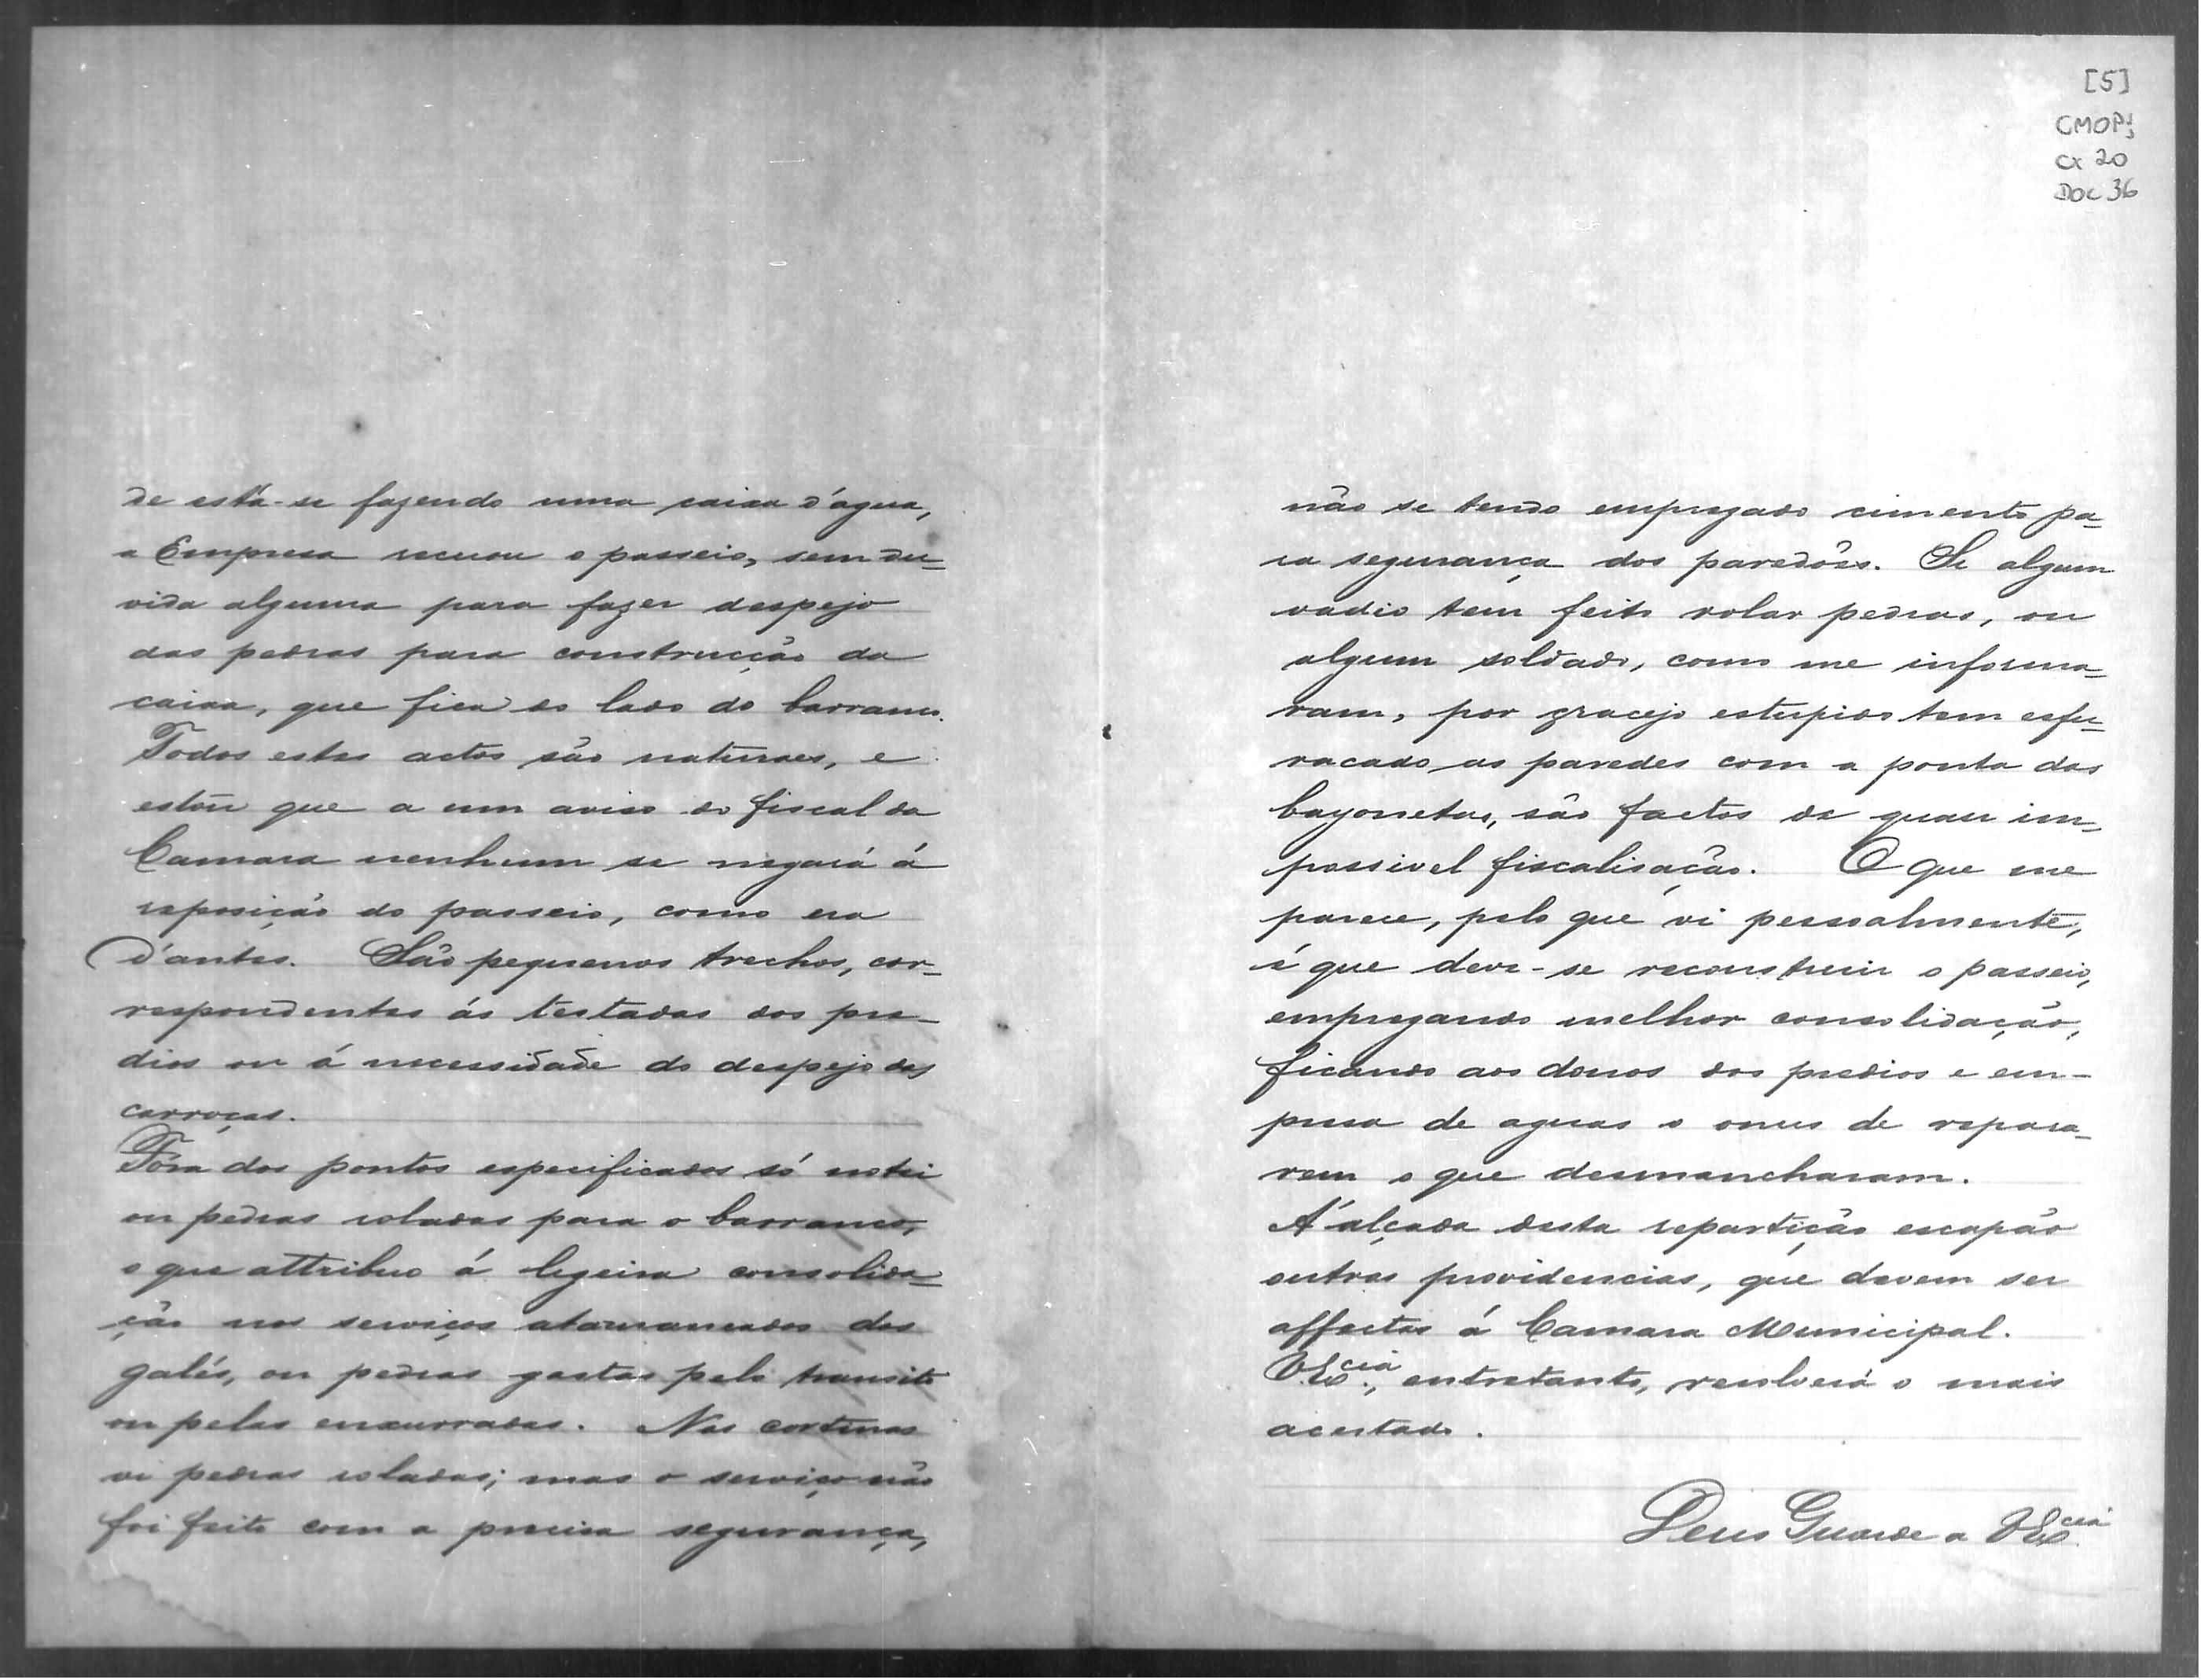 de está-se fazendo uma caixa d'agua,
a Empresa recuou o passeio, sem du-
vida alguma para fazer despejo
das pedras para construcção da
caixa, que fica do lado do barranco.
Todos estes actos são naturaes, e
estou que a um aviso do fiscal da
Camara nenhum se negará á
reposição do passeio, como era
d'antes. São pequenos trechos, cor-
respondentes ás testadas dos pre-
dios ou á necessidade do despejo das
carroças.
Fóra dos pontos especificados só notei
ou pedras roladas para o barranco,
o que attribuo á ligeira consolida-
ção nos serviços atamancados dos
galés, ou pedras gastas pelo transito
ou pelas enxurradas. Nas cortinas
vi pedras roladas; mas o serviço não
foi feito com a precisa segurança,
[5]
CMOP
Cx 20
DOC 36
não se tendo empregado cimento pa-
ra segurança dos paredões. Se algum
vadio tem feito rolar pedras, ou
algum soldado, como me informa-
ram, por gracejo estupido tem esfu-
racado as paredes com a ponta das
bayonetas, são factos de quasi im-
possivel fiscalisação. O que me
parece, pelo que vi pessoalmente,
é que deve-se reconstruir o passeio,
empregando melhor consolidação,
ficando aos donos dos predios e em-
presa de aguas o onus de repara-
rem o que desmancharam.
A' alçada desta repartição escapão
outras providencias, que devem ser
affectas á Camara Municipal.
V. Ex.cia, entretanto, resolverá o mais
acertado.
Deus Guarde a V Ex.cia